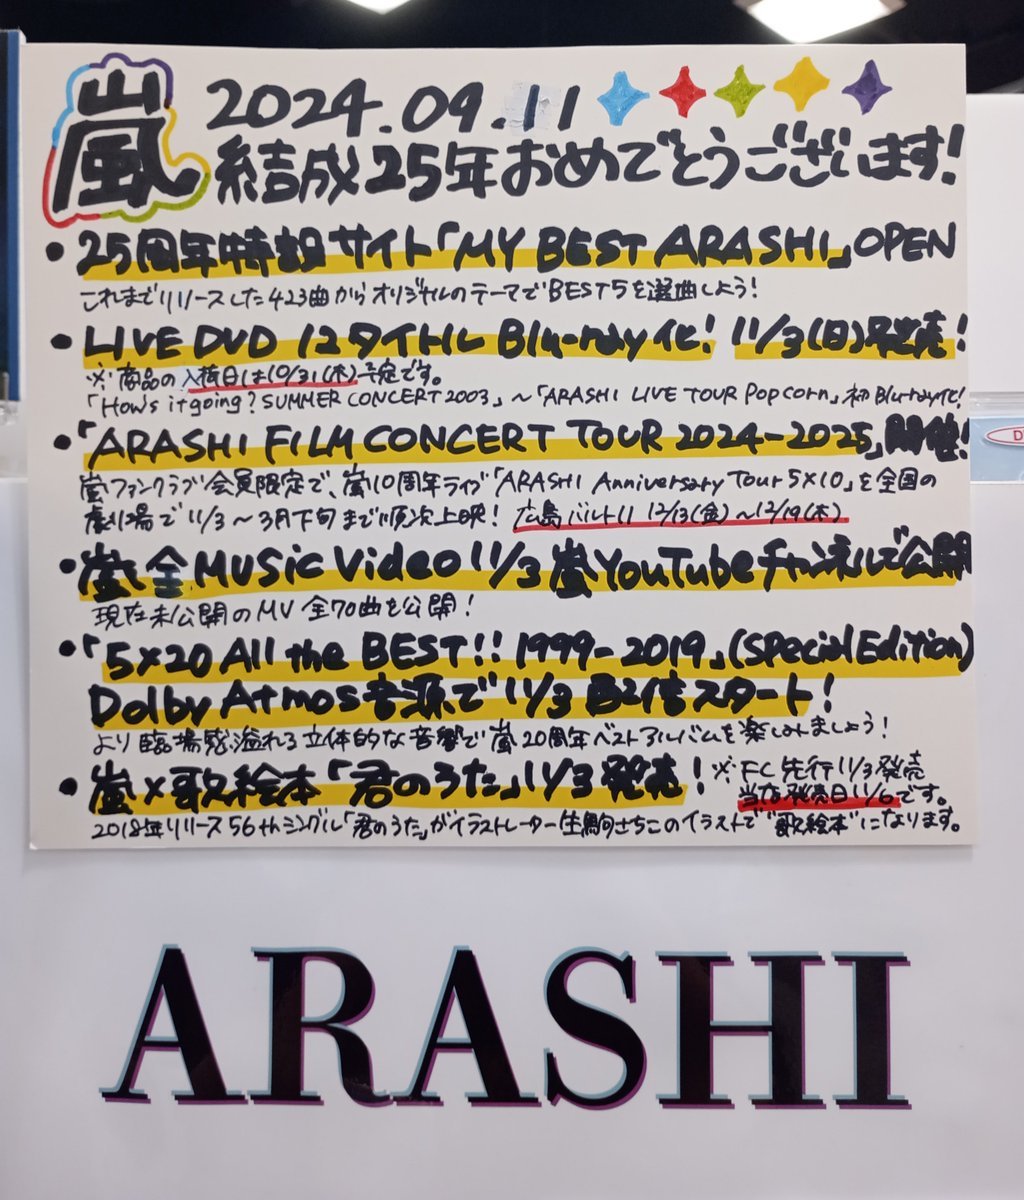 嵐
2024.09.11
結成25年おめでとうございます!
・25周年特設サイト「MY BEST ARASHI」OPEN
これまでリリースした423曲からオリジナルのテーマでBEST5を選曲しよう!
・LIVE DVD 12タイトル Blu-ray化! 11/3(日)発売!
※商品の入荷日は10/31(木)予定です。
「How's it going? SUMMER CONCERT 2003」～「ARASHI LIVE TOUR Popcorn」初Blu-ray化!
・「ARASHI FILM CONCERT TOUR 2024-2025」開催!
嵐ファンクラブ会員限定で、嵐10周年ライブ「ARASHI Anniversary Tour 5×10」を全国の
劇場で11/3～3月下旬まで順次上映! 広島バルト11 12/13(金)～12/19(木)
・嵐 全Music Video 11/3 嵐YouTubeチャンネルで公開
現在未公開のMV 全70曲を公開!
・「5×20 All the BEST!! 1999-2019」(Special Edition)
Dolby Atmos音源で11/3配信スタート!
より臨場感溢れる立体的な音響で嵐20周年ベストアルバムを楽しみましょう!
・嵐×歌絵本「君のうた」11/3発売! ※FC先行11/3発売
当店発売日11/6です。
2018年リリース56thシングル「君のうた」がイラストレーター生駒さちこのイラストで"歌絵本"になります。
ARASHI